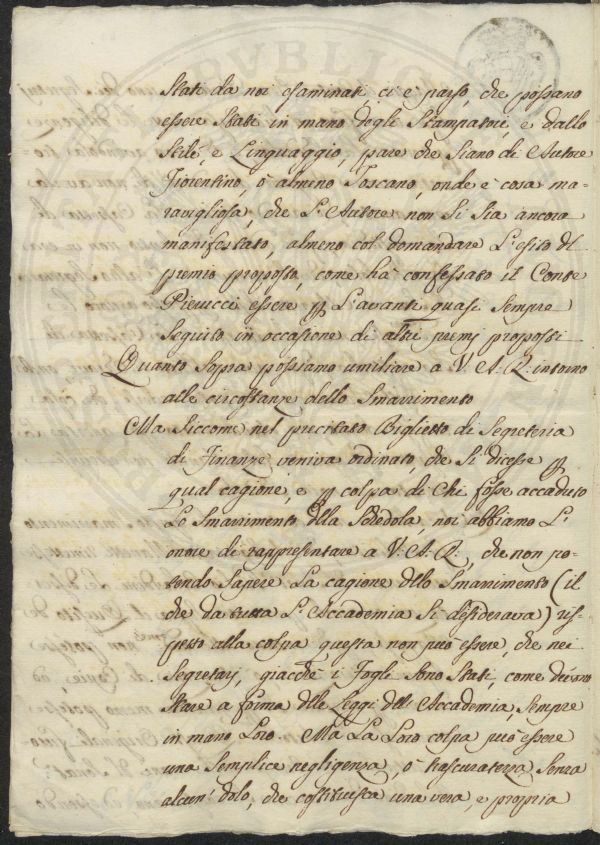 Stati da noi esaminati ci è parso, che possano
essere stati in mano degli Stampatori, e dallo
stile, e Linguaggio, pare che siano di Autore
Fiorentino, ò almeno Toscano, onde è cosa ma-
ravigliosa, che L'Autore non si sia ancora
manifestato, almeno col domandare L'esito del
premio proposto, come hà confessato il Conte
Pierucci essere p L'avanti quasi sempre
seguito in occasione di altri premj proposti
Quanto sopra possiamo umiliare a V. A. R. intorno
alle circostanze dello Smarrimento
Ma siccome nel precitato Biglietto di Segreteria
di Finanze veniva ordinato, che si dicesse p
qual cagione, e p colpa di chi fosse accaduto
Lo Smarrimento della Scedola, noi abbiamo L'
onore di rappresentare a V. A. R., che non po-
tendo sapere La cagione dello Smarrimento (il
che da tutta L'Accademia si desiderava) ris-
petto alla colpa questa non può essere, che nei
Segretarj, giacchè i Fogli sono stati, come devono
stare a forma delle Leggi dell'Accademia, sempre
in mano Loro. Ma La Loro colpa può essere
una semplice negligenza, ò trascuratezza senza
alcun dolo, che costituisca una vera, e propria